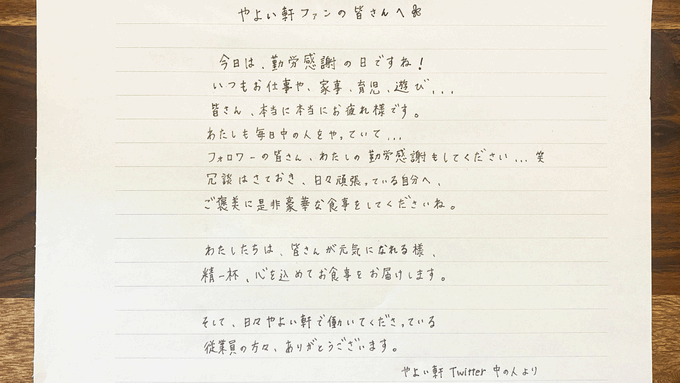 やよい軒ファンの皆さんへ
今日は、勤労感謝の日ですね!
いつもお仕事や、家事、育児、遊び...
皆さん、本当に本当にお疲れ様です。
わたしも毎日中の人をやっていて...
フォロワーの皆さん、わたしの勤労感謝もしてください...笑
冗談はさておき、日々頑張っている自分へ、
ご褒美に是非豪華な食事をしてくださいね。
わたしたちは、皆さんが元気になれる様、
精一杯、心を込めてお食事をお届けします。
そして、日々やよい軒で働いてくださっている
従業員の方々、ありがとうございます。
やよい軒 Twitter 中の人より